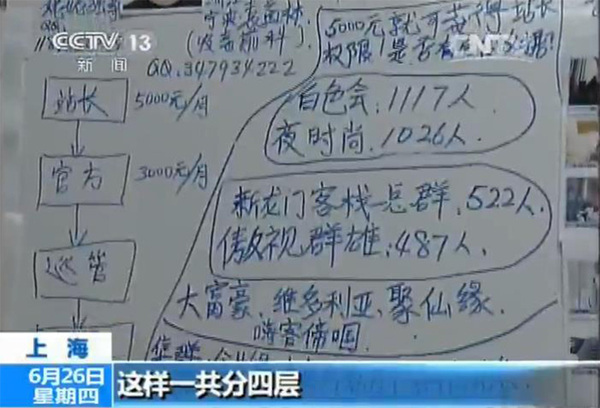 CCTV 13
新闻
QQ.347934222
5000元就可获得站长
权限!是否有
站长 5000元/月
官方 3000元/月
巡管
白色会:1117人
夜时尚:1026人.
新龙门客栈-总群:522人.
傲视群雄:487人.
大富豪、维多利亚、聚仙缘、
嗨客帝国
上海
6月26日
星期四
这样一共分四层